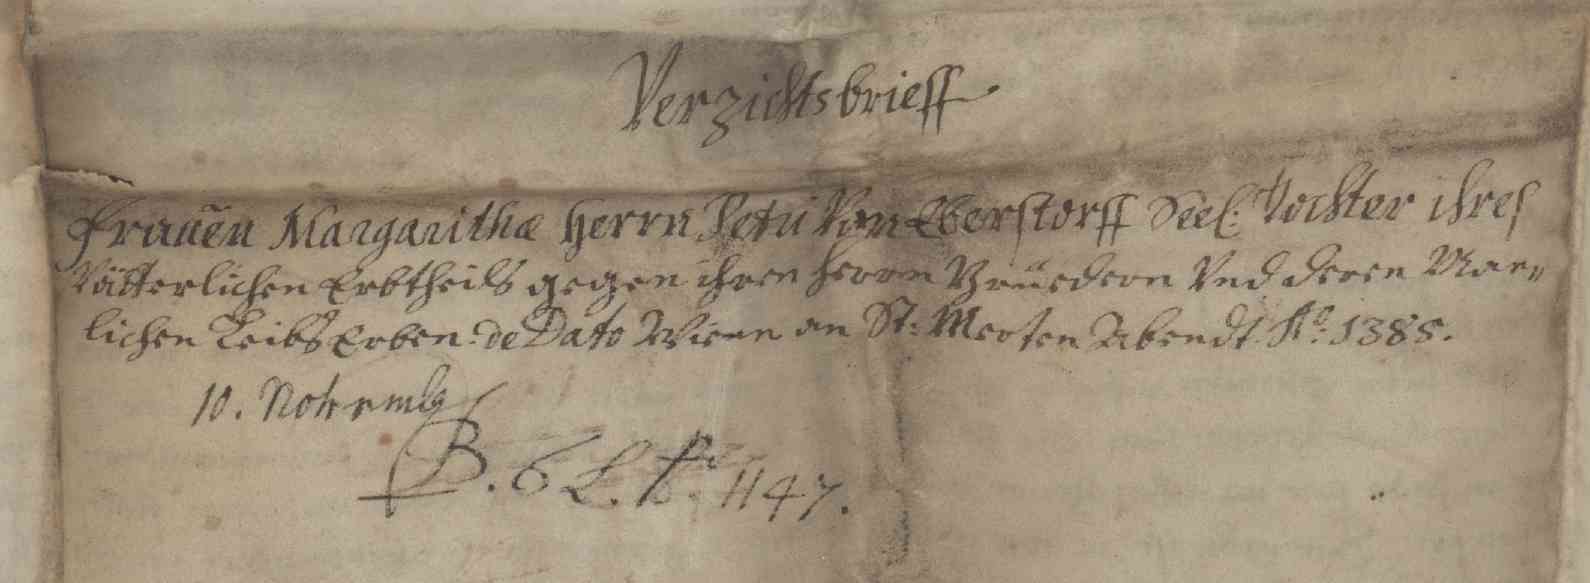 Verzichtsbrieff
Frauen Margarithæ Herrn Petri Von Eberstorff Seel: Tochter ihres
Vätterlichen Erbtheils gegen ihren herrn Brüedern Vnd deren Män„
lichen Leibs Erben. de Dato Wienn an St: Merten Abendt Aō. 1388.
10. Novemb
B. 6 L. 1147.